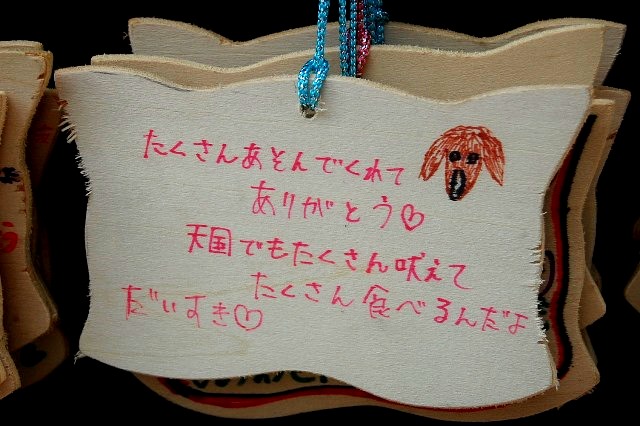 たくさんあそんでくれて
ありがとう♡
天国でもたくさん吠えて
たくさん食べるんだよ
だいすき♡